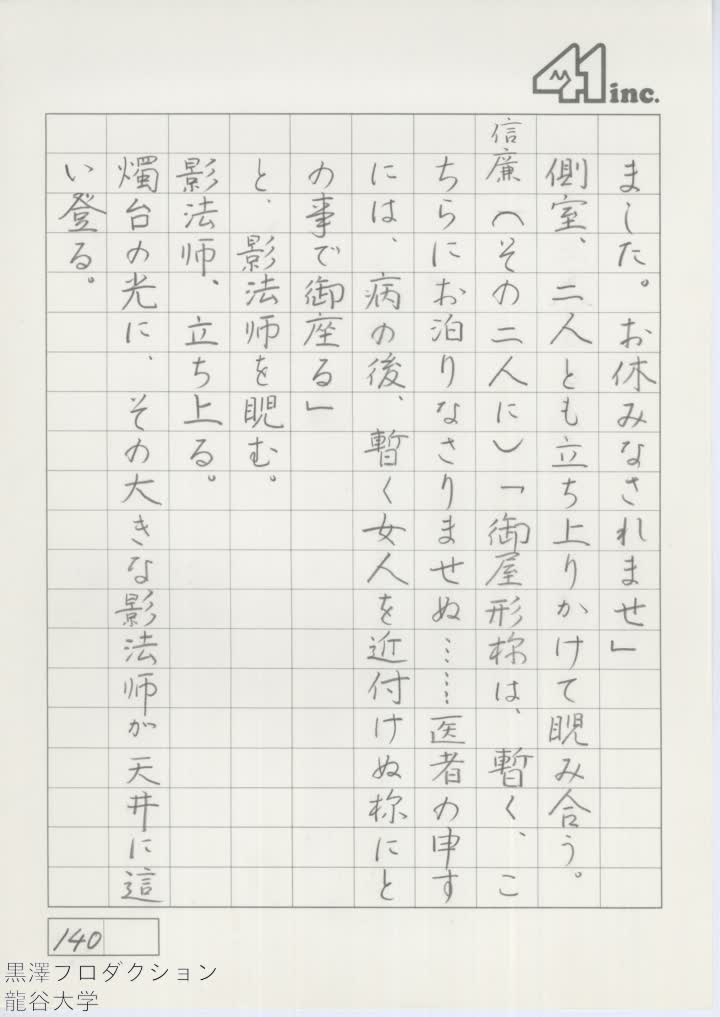 41 inc.
ました。お休みなされませ」
側室、二人とも立ち上りかけて睨み合う。
信廉（その二人に）「御屋形様は、暫く、こ
ちらにお泊りなさりませぬ……医者の申す
には、病の後、暫く女人を近付けぬ様にと
の事で御座る」
と、影法師を睨む。
影法師、立ち上る。
燭台の光に、その大きな影法師が天井に這
い登る。
140
黒澤プロダクション
龍谷大学